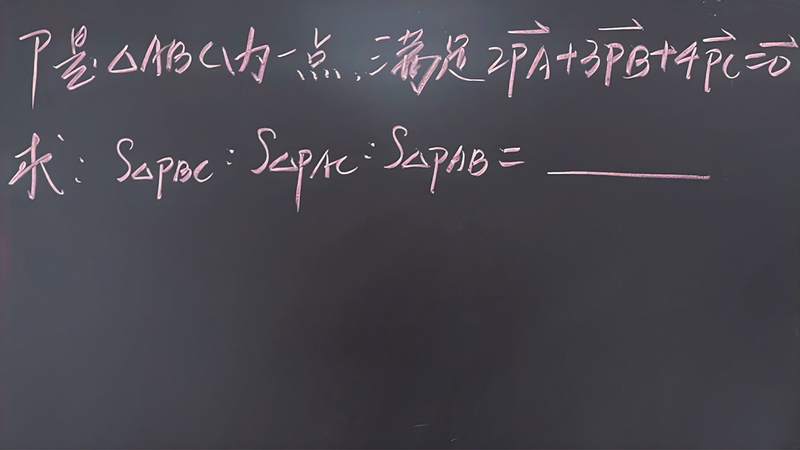 P是△ABC内一点,满足2\overrightarrow{PA}+3\overrightarrow{PB}+4\overrightarrow{PC}=\overrightarrow{0}
求:S△PBC:S△PAC:S△PAB=______